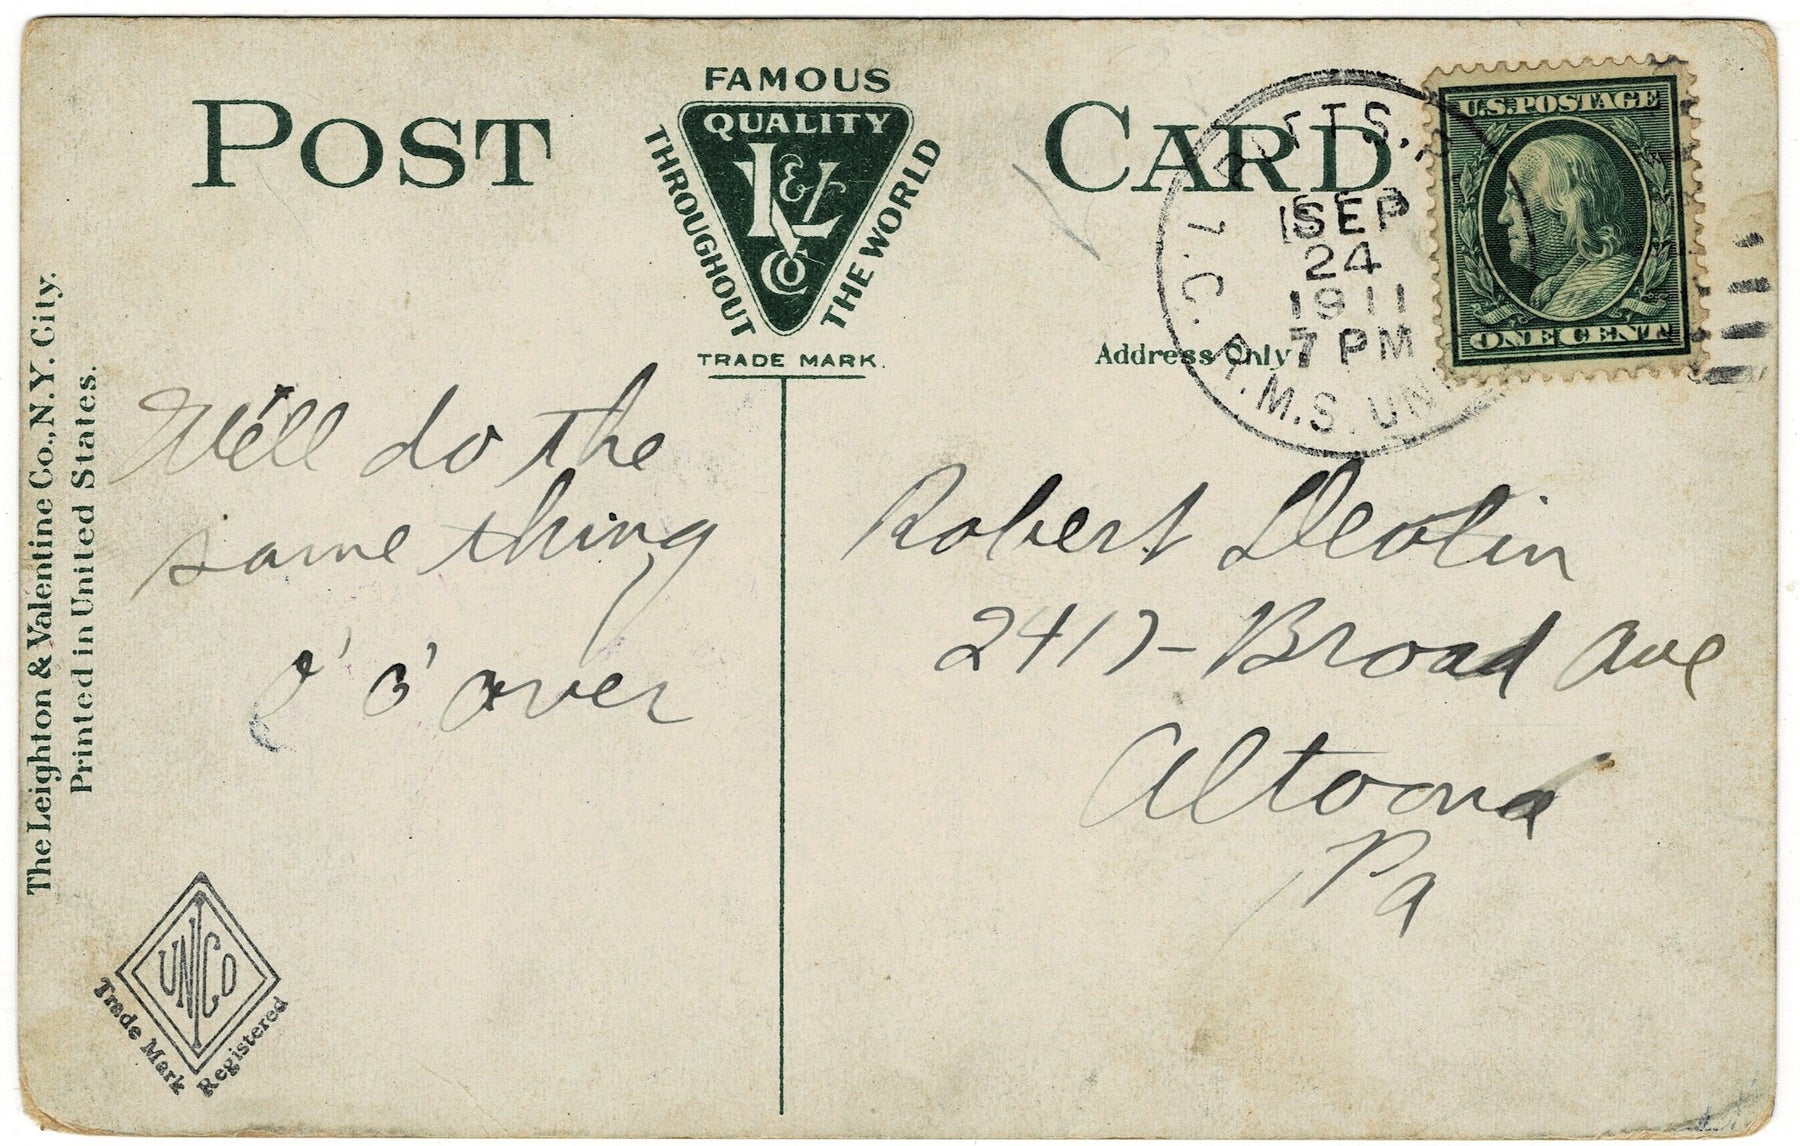 POST CARD
FAMOUS
QUALITY
L & V
Co
THROUGHOUT
THE WORLD
TRADE MARK.
U.S. POSTAGE
ONE CENT
PITTS.
SEP
24
1911
7 PM
T.C. R.M.S.
Address Only
The Leighton & Valentine Co., N.Y. City.
Printed in United States.
We'll do the
same thing
over
Robert Devlin
2417 - Broad Ave
Altoona
Pa
UNICO
Trade Mark Registered